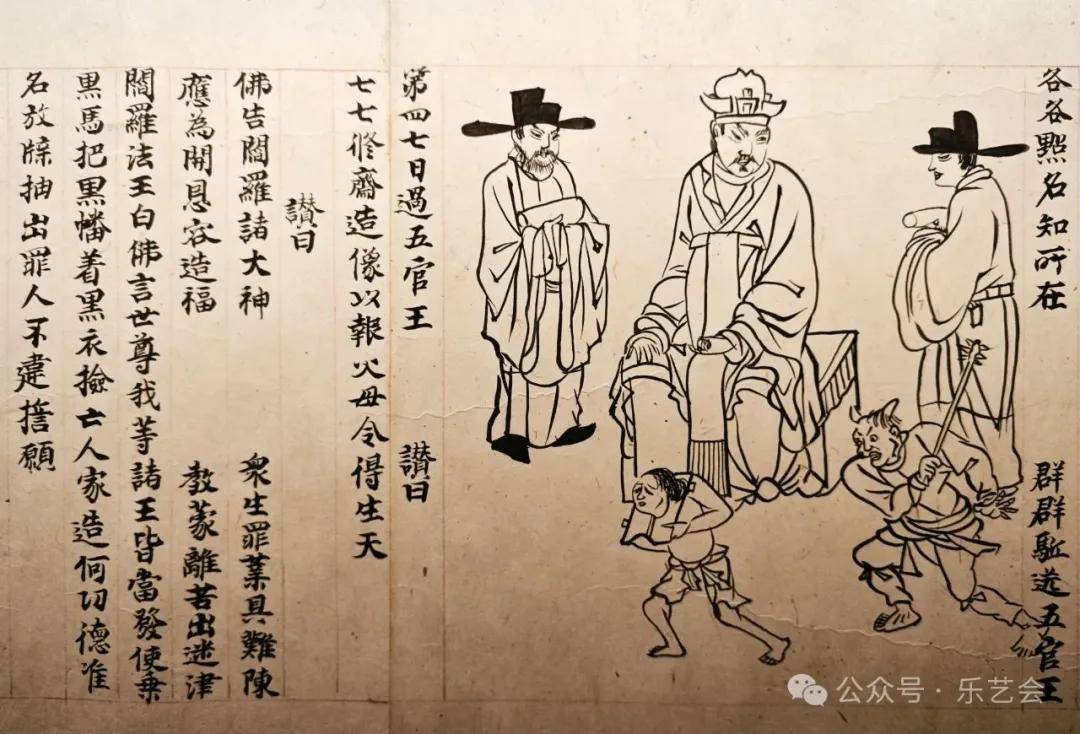 各各點名知所在 群群駈送五官王
第四七日過五官王 讃曰
七七修齋造像以報父母令得生天
讃曰
佛告閻羅諸大神 衆生罪業具難陳
應為開恩容造福 教蒙離苦出迷津
閻羅法王白佛言世尊我等諸王皆當發使乗
黒馬把黒幡着黒衣撿亡人家造何功德准
名放牒抽出罪人不違擔願
公众号·乐艺会